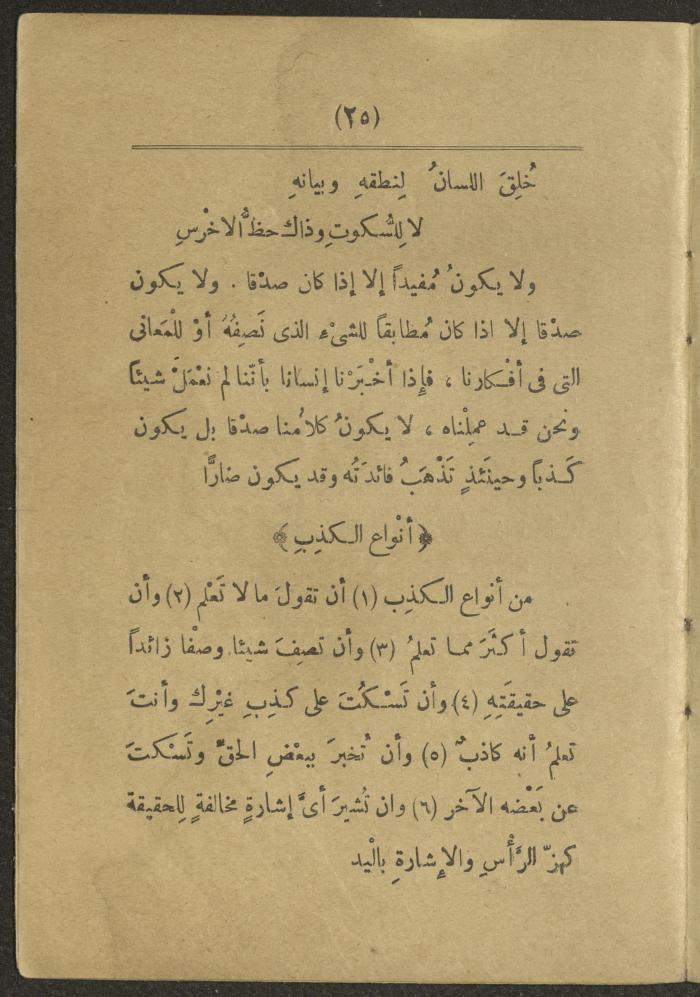 (٢٥)
خُلِقَ اللسانُ لِنطقهِ وبيانهِ
لا لِلسُّكوتِ وذاك حظُّ الاخْرسِ
ولا يكونُ مُفيداً إلا إذا كان صدْقا . ولا يكون
صدْقا إلا اذا كان مُطابقاً للشىْءِ الذى نَصِفُهُ أوْ للْمَعانى
التى فى أفْكارنا ، فإِذا أخْبَرْنا إنسانا بأنّنا لم نعْمَلْ شيئاً
ونحن قد عمِلْناه ، لا يكونُ كلامُنا صدْقا بل يكون
كَذباً وحينَئذٍ تَذْهَبُ فائدَتُه وقد يكون ضارًّا
﴿أنْواع الكذِبِ﴾
من أنواع الكذِب (١) أن تقولَ ما لا تَعْلم (٢) وأن
تقول أكثَرَ مما تعلمُ (٣) وأن تصِفَ شيئا وصْفا زائداً
على حقيقَتِهِ (٤) وأن تَسْكُتَ على كذِبِ غيْرِك وأنتَ
تعلمُ أنه كاذبٌ (٥) وأن تُخبرَ ببعْضِ الحقِّ وتَسْكتَ
عن بَعْضه الآخر (٦) وان تُشيرَ أىَّ إشارةٍ مخالفةٍ لِلحقيقة
كهزّ الرَّأْسِ والإِشارةِ بالْيد